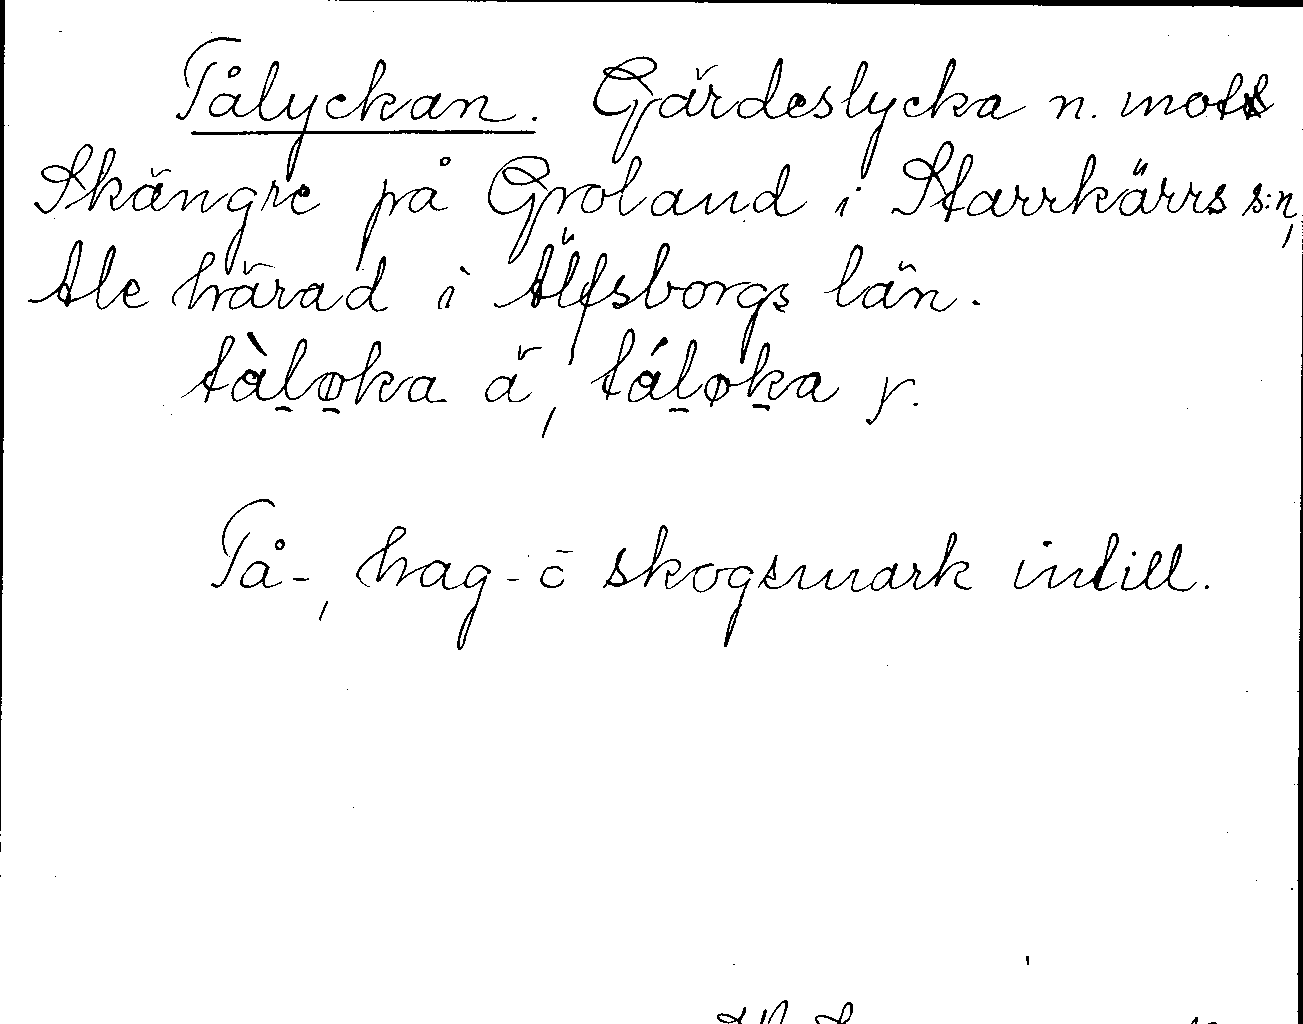 Tålyckan. Gärdeslycka n. mott
Skängre på Groland i Starrkärrs s:n,
Ale härad i Älfsborgs län.
tàḻø̱ka ä, táḻøḵa y.
Tå-, hag- o skogsmark intill.